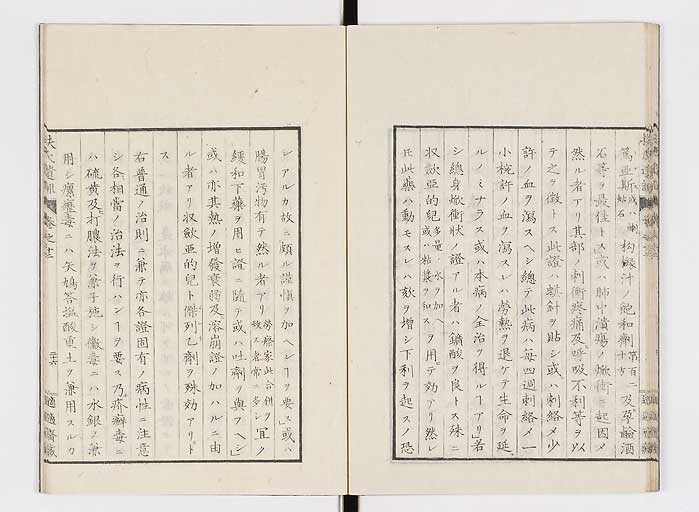 篤亜斯或ハ剌𪉩石枸櫞汁ノ飽和劑第百二十方及孕鹼酒
石等ヲ最佳トス或ハ肺中潰瘍ノ焮衝ニ起因メ
然ル者アリ其部ノ刺衝疼痛及呼吸不利等ヲ以
テ之ヲ徴トス此證ハ蜞針ヲ貼シ或ハ刺絡メ少
許ノ血ヲ瀉スヘシ總テ此病ハ毎四週刺絡メ一
小椀許ノ血ヲ瀉スレハ勞熱ヲ退ケテ生命ヲ延
ルノミナラス或ハ本病ノ全治ヲ得ルヿアリ若
シ總身焮衝状ノ證アル者ハ鑛酸ヲ良トス殊ニ
収斂亜的兒多量ノ水ヲ加ヘ或ハ粘漿ヲ和スヲ用テ効アリ然レ
𪜈此藥ハ動モスレハ欬ヲ増シ下利ヲ起スノ恐
レアルカ故ニ頗ル謹愼ヲ加ヘンヿヲ要ス或ハ
腸胃汚物有テ然ル者アリ勞瘵家此合併ヲ致ス者常ニ多シ冝ク
緩和下藥ヲ用ヒ證ニ隨テ或ハ吐劑ヲ與フヘシ
或ハ亦其熱ノ増發衰弱及溶崩證ノ加ハルニ由
ル者アリ収斂亜的兒ト傑列乙劑ヲ殊効アリト
ス
右普通ノ治則ニ兼テ亦各證固有ノ病性ニ注意
シ各相當ノ治法ヲ行ハンヿヲ要ス乃疥癬毒ニ
ハ硫黄及ヒ打膿法ヲ兼子施シ黴毒ニハ水銀ヲ兼
用シ瘰癧毒ニハ矢鳩荅塩酸重土ヲ兼用スルカ